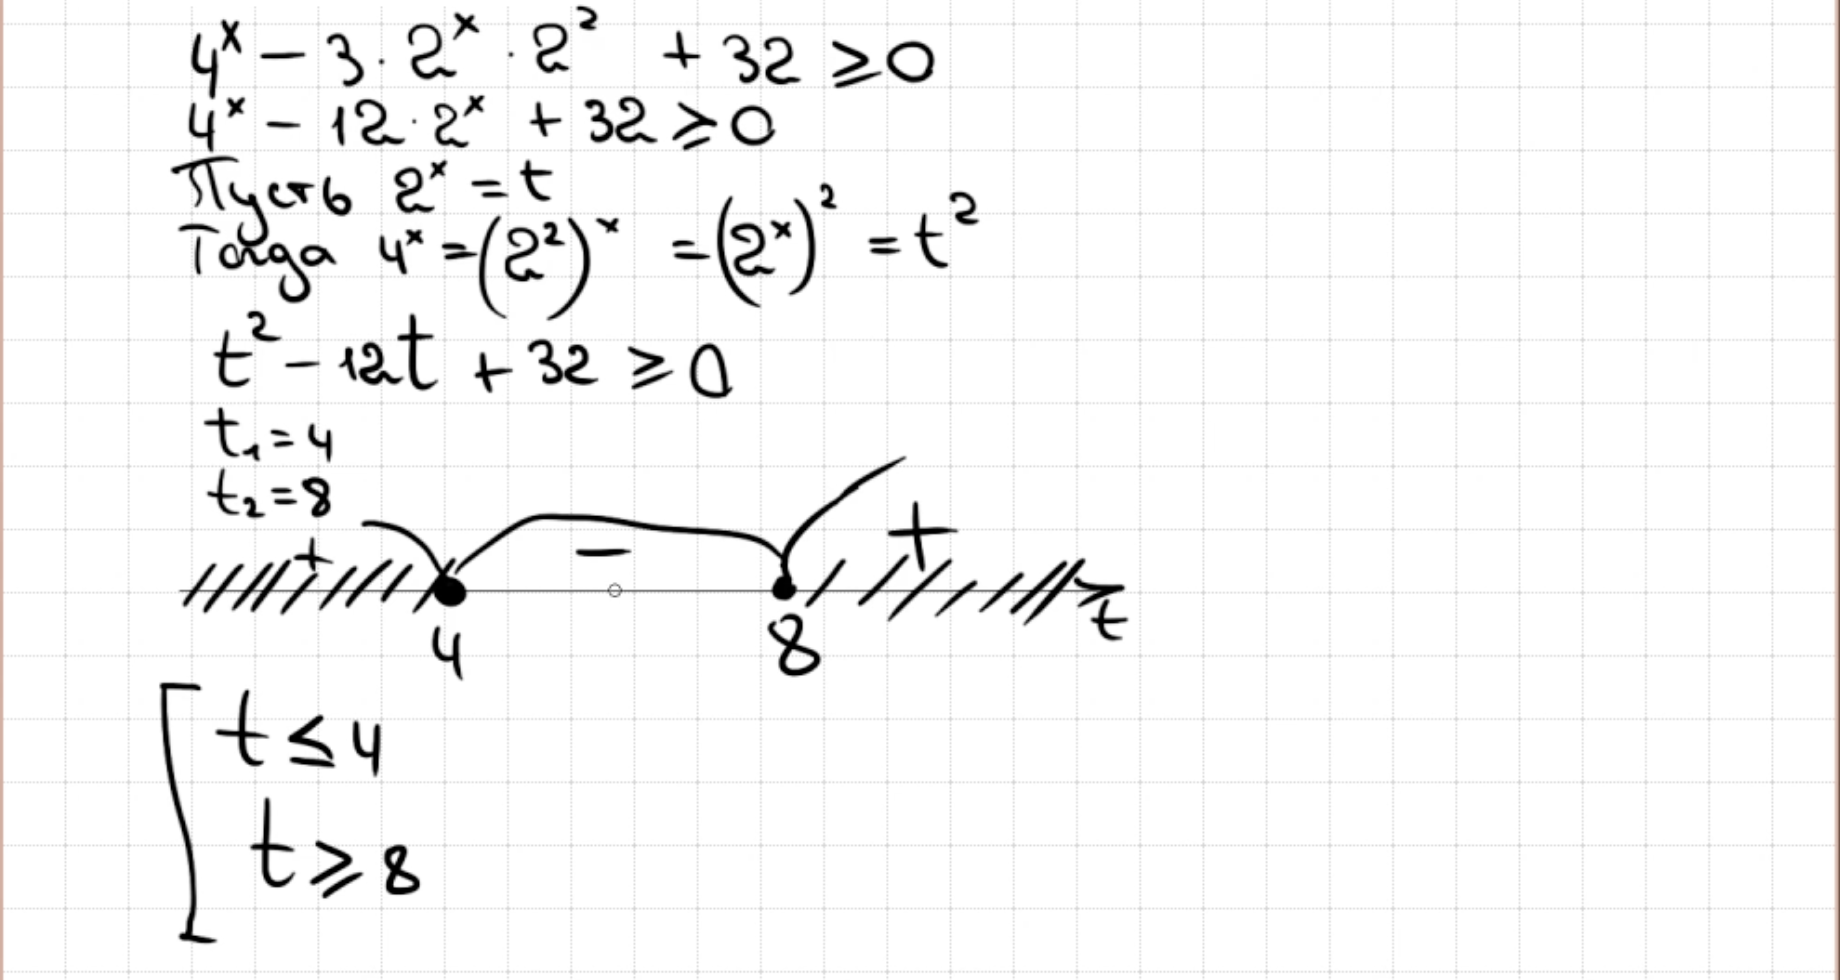 4ˣ − 3 · 2ˣ · 2² + 32 ⩾ 0
4ˣ − 12 · 2ˣ + 32 ⩾ 0
Пусть 2ˣ = t
Тогда 4ˣ = (2²)ˣ = (2ˣ)² = t²
t² − 12t + 32 ⩾ 0
t₁ = 4
t₂ = 8
+ − +
4 8 t
t ≤ 4
t ⩾ 8